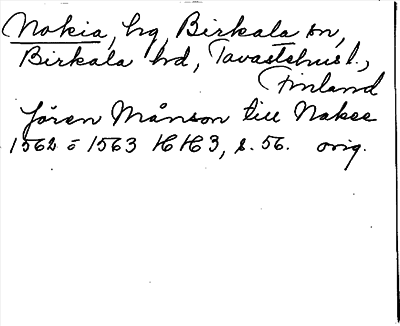 Nokia, hg, Birkala sn,
Birkala hd, Tavastehus l.,
Finland
Jören Månson till Nakee
1562 o 1563 HH3, s. 56. orig.